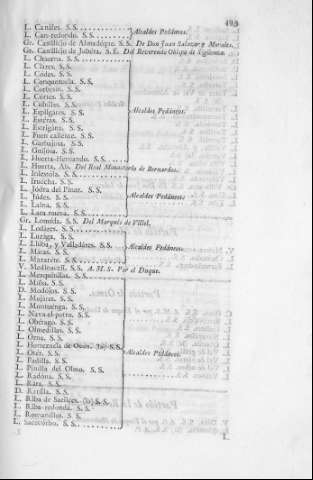 423
L. Canales. S.S.
L. Can-redondo. S.S. Alcaldes Pedáneos.
Gr. Castillejo de Almadeque. S.S. De Don Juan Salazar y Morales.
Gr. Castillejo de Jubera. S.E. Del Reverendo Obispo de Sigüenza.
L. Chaorna. S.S.
L. Clares. S.S.
L. Codes. S.S.
L. Conquezuela. S.S.
L. Corbesin. S.S.
L. Cortes. S.S.
L. Cubillas. S.S.
L. Esplegares. S.S. Alcaldes Pedáneos.
L. Esteras. S.S.
L. Estriégana. S.S.
L. Fuen caliente. S.S.
L. Garbajosa. S.S.
L. Guijosa. S.S.
L. Huerta-Hernando. S.S.
L. Huerta, Ab. Del Real Monasterio de Bernardos.
L. Iniestola. S.S.
Iruecha. S.S.
L. Jodra del Pinar. S.S.
L. Judes. S.S. Alcaldes Pedáneos.
L. Laina. S.S.
L. Lara nueva. S.S.
Gr. Lomeda. S.S. Del Marqués de Villel.
L. Lodares. S.S.
L. Luzaga. S.S.
L. Lluba, y Valladares. S.S. Alcaldes Pedáneos.
L. Miños. S.S.
L. Mazarete. S.S.
V. Medinaceli. S.S. A.M.S. Por el Duque.
L. Mezquitillas. S.S.
L. Miño. S.S.
D. Modojos. S.S.
L. Mojares. S.S.
L. Montuenga. S.S.
L. Nava-el-potro. S.S.
L. Obétago. S.S.
L. Olmedillas. S.S.
L. Orna. S.S.
L. Hortezuela de Océn. S.S.
L. Otér. S.S. Alcaldes Pedáneos.
L. Padilla. S.S.
L. Pinilla del Olmo. S.S.
L. Radona. S.S.
L. Rata. S.S.
D. Ratilla. S.S.
L. Riba de Saelices. S.S.
L. Riba-redonda. S.S.
L. Romanillos. S.S.
L. Sacecorbo. S.S.
L.